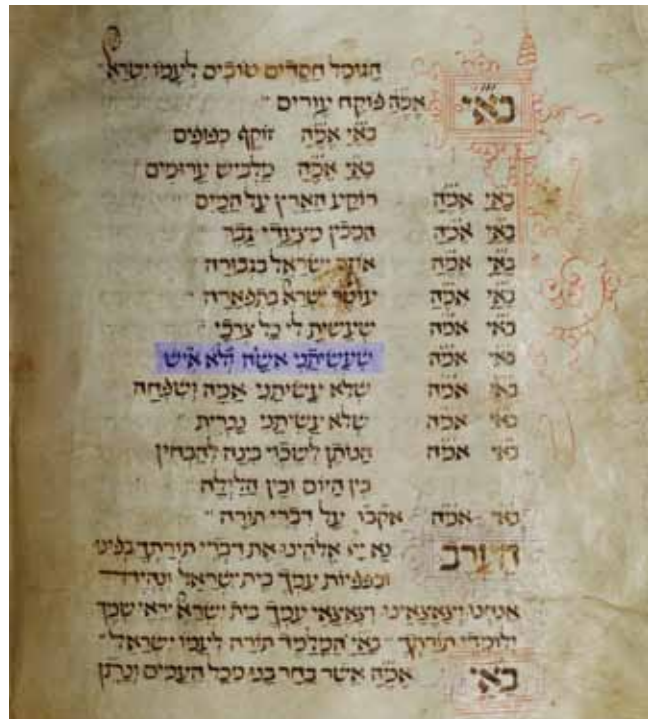 הגומל חסדים טובים לעמו ישרא
בא״י אמ״ה פוקח עורים
בא״י אמ״ה זוקף כפופים
בא״י אמ״ה מלביש ערומים
בא״י אמ״ה רוקע הארץ על המים
בא״י אמ״ה המכין מצעדי גבר
בא״י אמ״ה אוזר ישראל בגבורה
בא״י אמ״ה עוטר ישרא בתפארה
בא״י אמ״ה שעשית לי כל צרכי
בא״י אמ״ה שעשיתני אשה ולא איש
בא״י אמ״ה שלא עשיתני אמה ושפחה
בא״י אמ״ה שלא עשיתני נכרית
בא״י אמ״ה הנותן לשכוי בינה להבחין
בין היום ובין הלילה
בא״י אמ״ה אקבו על דברי תורה
הערב נא יי אלהינו את דברי תורתך בפינו
ובפפיות עמך בית ישראל ונהיה
אנחנו וצאצאינו וצאצאי עמך בית ישרא יראי שמך
ולומדי תורתך בא״י המלמד תורה לעמו ישראל
בא״י אמ״ה אשר בחר בנו מכל העמים ונתן